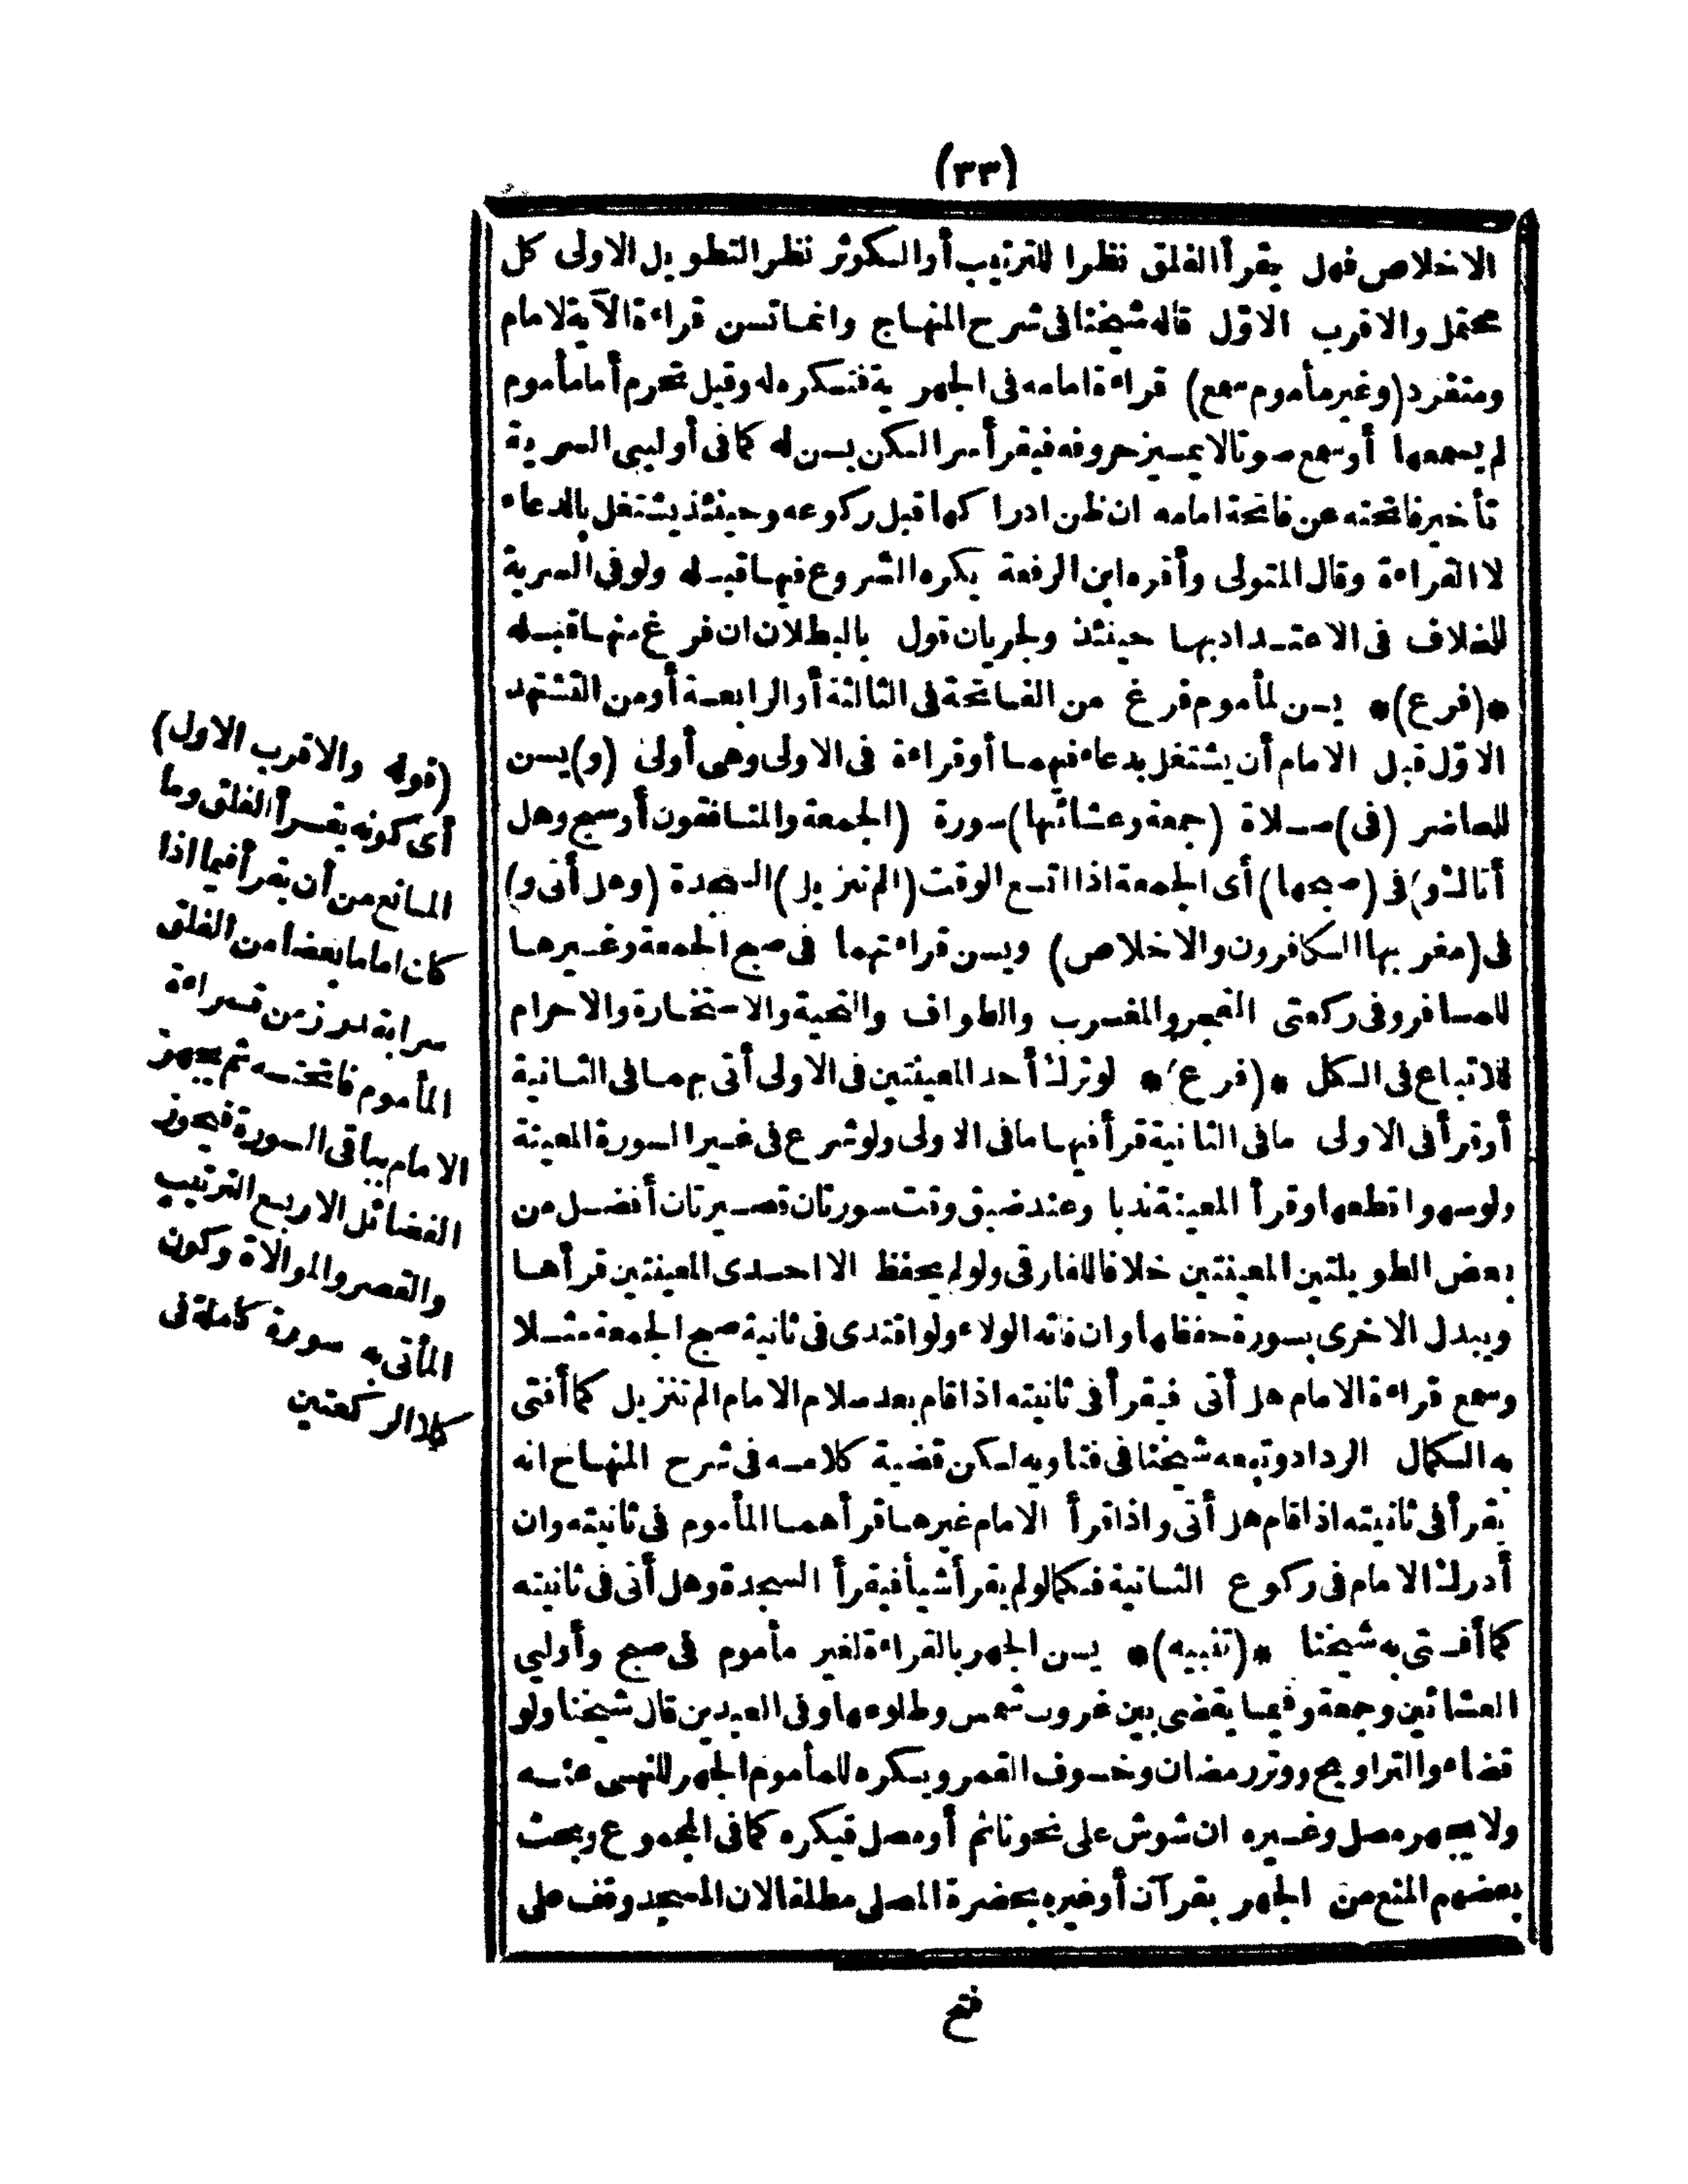 (٣٣)
الاخلاص فهل يقرأ الفلق نظرا للترتيب أو الكوثر نظر التطويل الاولى كل
محتمل والاقرب الاوّل قاله شيخنا فى شرح المنهاج وانما تسن قراءة الآية لامام
ومنفرد (وغير مأموم سمع) قراءة امامه فى الجهرية فتكره له وقيل تحرم أما مأموم
لم يسمعها أو سمع صوتا لا يميز حروفه فيقرأ سرا لكن يسن له كما فى أوليى السرية
تأخير فاتحته عن فاتحة امامه ان ظن ادراكها قبل ركوعه وحينئذ يشتغل بالدعاء
لا القراءة وقال المتولى وأقره ابن الرفعة يكره الشروع فيها قبله ولو فى السرية
للخلاف فى الاعتداد بها حينئذ ولجريان قول بالبطلان ان فرغ منها قبله
*(فرع)* يسن لمأموم فرغ من الفاتحة فى الثالثة أو الرابعة أو من التشهد
الاوّل قبل الامام أن يشتغل بدعاء فيهما أو قراءة فى الاولى وهى أولى (و) يسن
للحاضر (فى) صلاة (جمعة وعشائها) سورة (الجمعة والمنافقون أو سبح وهل
أتاك و) فى (صبحها) أى الجمعة اذا اتسع الوقت (الم تنزيل) السجدة (وهل أتى و)
فى (مغربها الكافرون والاخلاص) ويسن قراءتهما فى صبح الجمعة وغيرها
للمسافر وفى ركعتى الفجر والمغرب والطواف والتحية والاستخارة والاحرام
للاتباع فى الكل *(فرع)* لو ترك أحد المعينتين فى الاولى أتى بهما فى الثانية
أو قرأ فى الاولى ما فى الثانية قرأ فيها ما فى الاولى ولو شرع فى غير السورة المعينة
ولو سهوا قطعها وقرأ المعينة ندبا وعند ضيق وقت سورتان قصيرتان أفضل من
بعض الطويلتين المعينتين خلافا للفارقى ولو لم يحفظ الا احدى المعينتين قرأها
ويبدل الاخرى بسورة حفظها وان فاته الولاء ولو اقتدى فى ثانية صبح الجمعة مثلا
وسمع قراءة الامام هل أتى فيقرأ فى ثانيته اذا قام بعد سلام الامام الم تنزيل كما أفتى
به الكمال الرداد وتبعه شيخنا فى فتاويه لكن قضية كلامه فى شرح المنهاج انه
يقرأ فى ثانيته اذا قام هل أتى واذا قرأ الامام غيرها قرأهما المأموم فى ثانيته وان
أدرك الامام فى ركوع الثانية فكما لو لم يقرأ شيأ فيقرأ السجدة وهل أتى فى ثانيته
كما أفتى به شيخنا *(تنبيه)* يسن الجهر بالقراءة لغير مأموم فى صبح وأوليى
العشائين وجمعة وفيما يقضى بين غروب شمس وطلوعها وفى العيدين قال شيخنا ولو
قضاء والتراويح ووتر رمضان وخسوف القمر ويكره للمأموم الجهر للنهى عنه
ولا يجهر مصل وغيره ان شوش على نحو نائم أو مصل فيكره كما فى المجموع وبحث
بعضهم المنع من الجهر بقرآن أو غيره بحضرة المصلى مطلقا لان المسجد وقف على
(قوله والاقرب الاول)
أى كونه يقرأ الفلق وما
المانع من أن يقرأ فيما اذا
كان اماما بعضا من الفلق
سرا بقدر زمن قراءة
المأموم فاتحته ثم يجهر
الامام بباقى السورة فيحوز
الفضائل الاربع الترتيب
والقصر والموالاة وكون
المأتى به سورة كاملة فى
كلا الركعتين
فتح